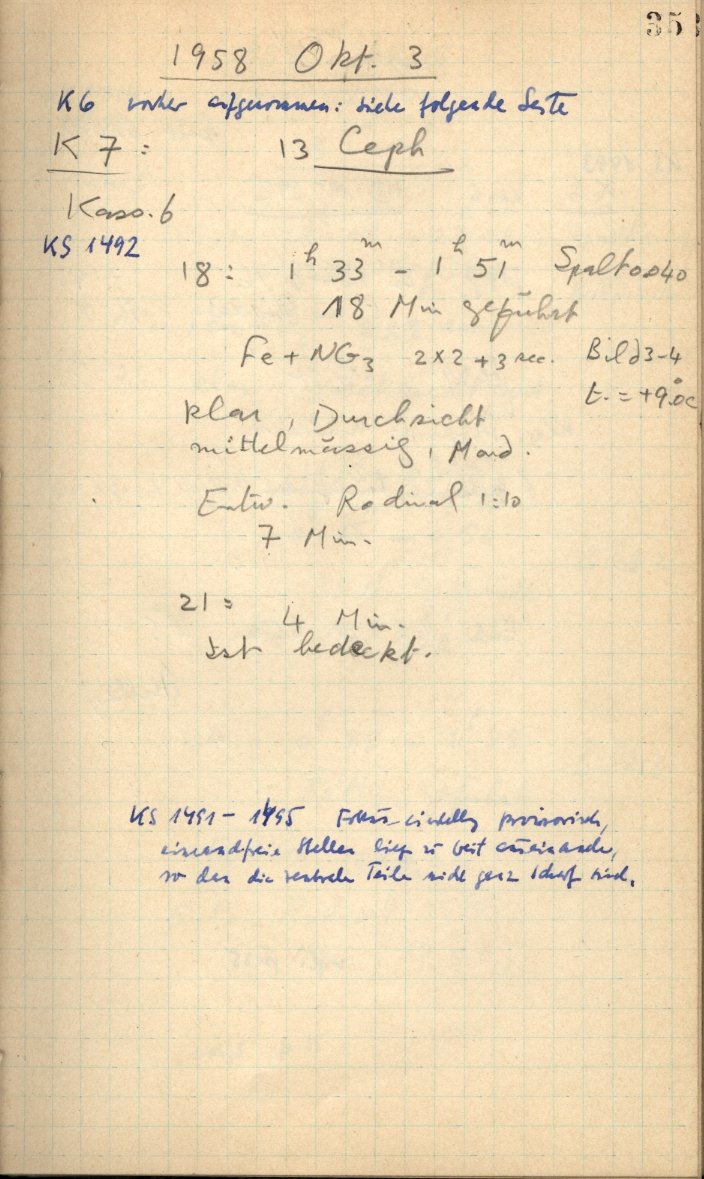 353
1958 Okt. 3
K6 vorher aufgenommen: siehe folgende Seite
K 7 : 13 Ceph
Kass. 6
KS 1492
18 : 1h 33m - 1h 51m Spalt 0.040
18 Min geführt
Fe + NG3 2x2 + 3 sec. Bild 3-4
t. = +9.°0C
klar, Durchsicht
mittelmässig, Mond.
Entw. Rodinal 1:10
7 Min.
21 :
4 Min.
ist bedeckt.
KS 1491 - 1495 Fokus provisorisch,
einwandfreie Stellen liegen zu weit auseinander,
so dass die zentralen Teile nicht ganz scharf sind.